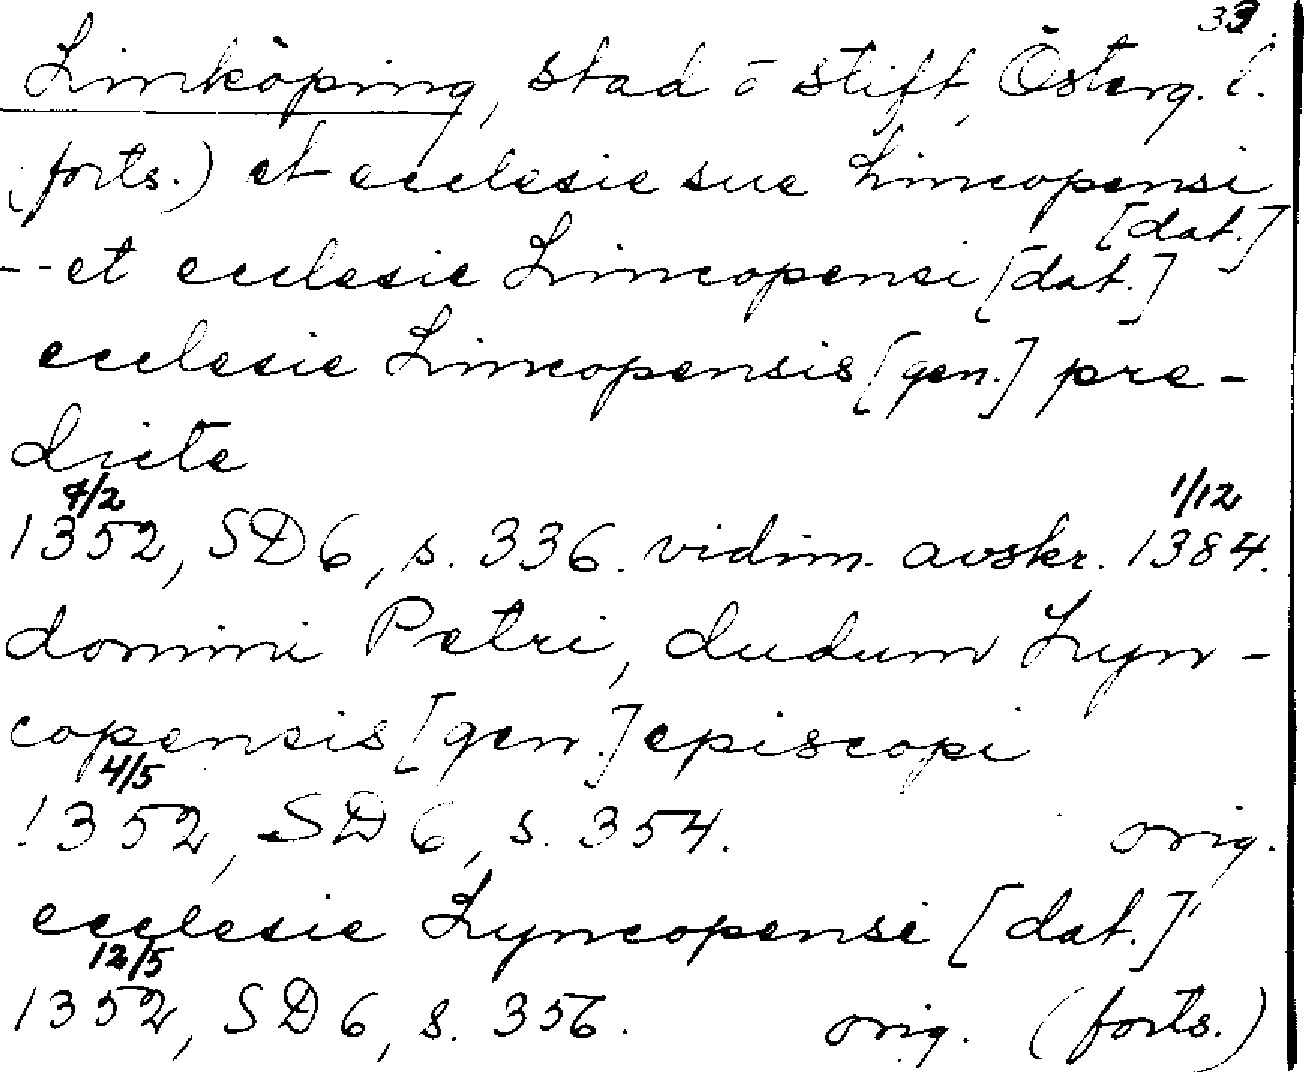 33.
Linköping, stad o stift, Österg. l.
(forts.) et ecclesie sue Lincopensi
[dat.]
-- et ecclesie Lincopensi [dat.]
ecclesie Lincopensis [gen.] pre-
dicte
4/2 1/12
1352, SD 6, s. 336. vidim. avskr. 1384.
domini Petri, dudum Lyn-
copensis [gen.] episcopi
4/5
1352, SD 6, s. 354. orig.
ecclesie Lyncopensi [dat.]
12/5
1352, SD 6, s. 356. orig. (forts.)